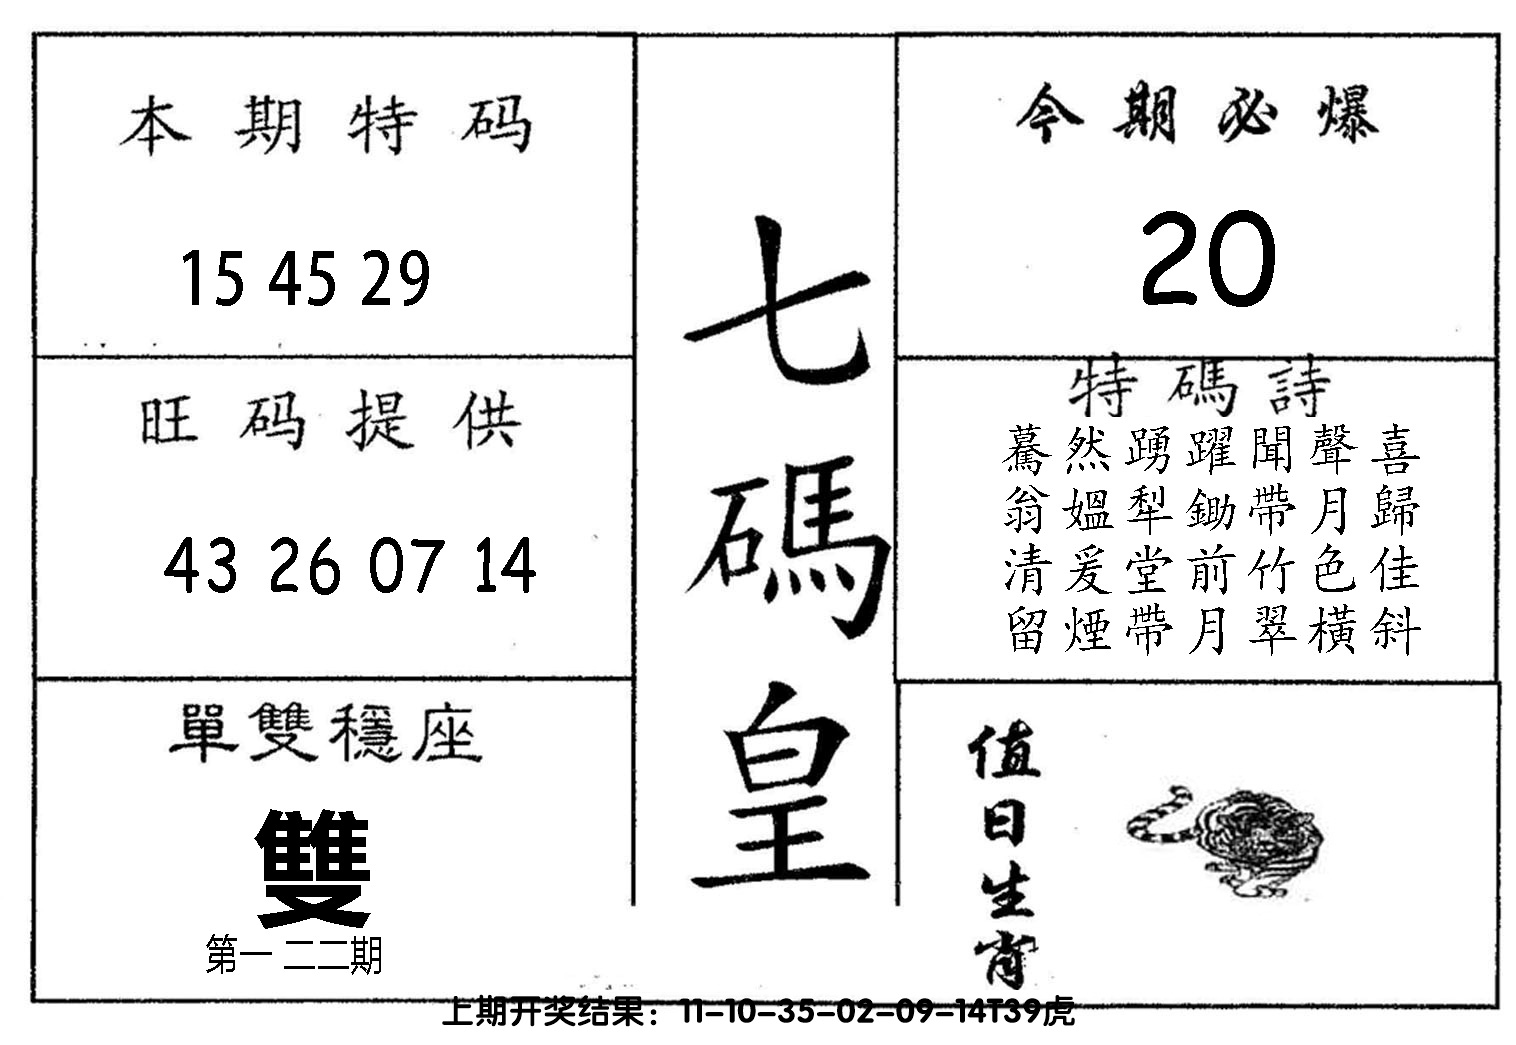 本期特码
15 45 29
旺码提供
43 26 07 14
單雙穩座
雙
第一 二二期
七碼皇
今期必爆
20
特碼詩
驀然踴躍聞聲喜
翁媼犁鋤帶月歸
清爰堂前竹色佳
留煙帶月翠橫斜
值日生肖
上期开奖结果：11-10-35-02-09-14T39虎